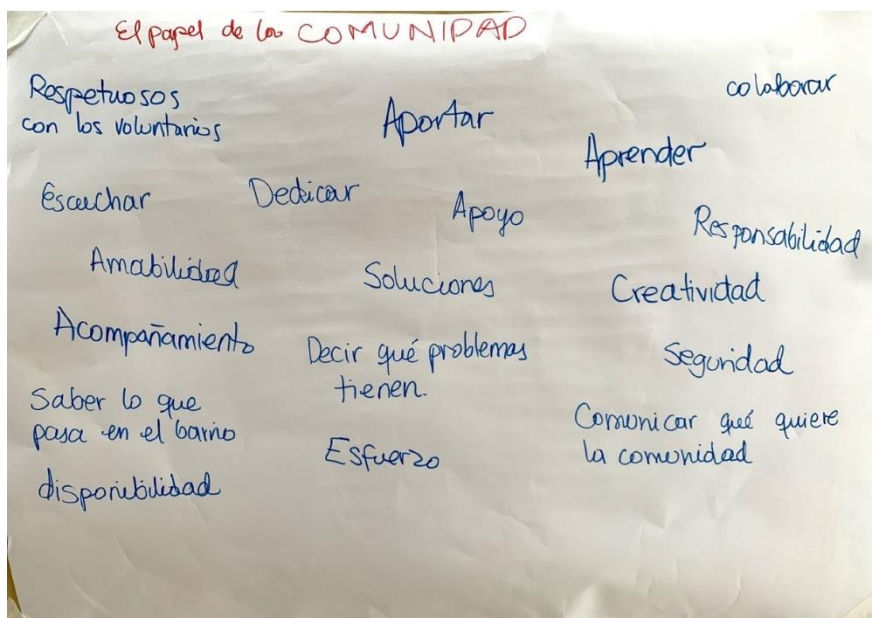 El papel de la COMUNIDAD
Respetuosos
con los voluntarios
Aportar
colaborar
Aprender
Escuchar
Dedicar
Apoyo
Responsabilidad
Amabilidad
Soluciones
Creatividad
Acompañamiento
Decir qué problemas
tienen.
Seguridad
Saber lo que
pasa en el barrio
Comunicar qué quiere
la comunidad
Esfuerzo
disponibilidad